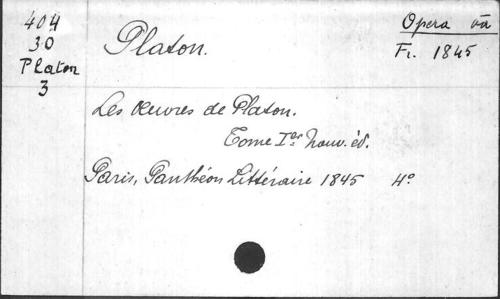 404
30
Platon
3
Platon.
Opera
Fr. 1845
Les Œuvres de Platon.
Tome Ier Nouv. éd.
Paris, Panthéon Littéraire 1845 4°